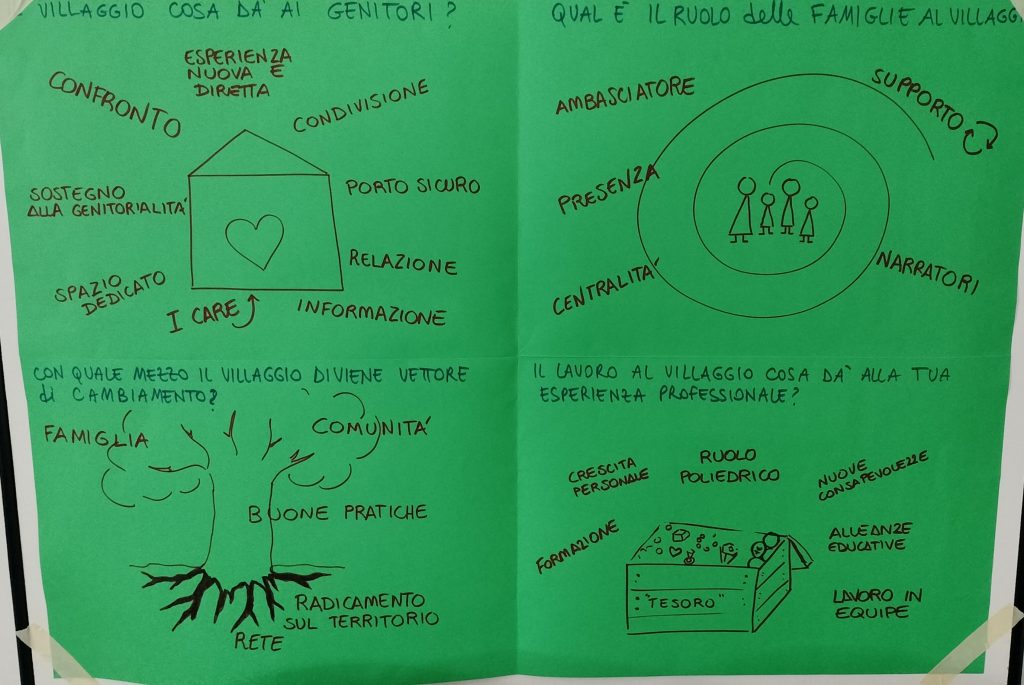 VILLAGGIO COSA DA' AI GENITORI?
ESPERIENZA
NUOVA E
DIRETTA
CONFRONTO
CONDIVISIONE
SOSTEGNO
ALLA GENITORIALITA'
PORTO SICURO
SPAZIO
DEDICATO
RELAZIONE
I CARE
INFORMAZIONE
QUAL E' IL RUOLO delle FAMIGLIE AL VILLAGGI
AMBASCIATORE
SUPPORTO
PRESENZA
CENTRALITA'
NARRATORI
CON QUALE MEZZO IL VILLAGGIO DIVIENE VETTORE
di CAMBIAMENTO?
FAMIGLIA
COMUNITA'
BUONE PRATICHE
RADICAMENTO
SUL TERRITORIO
RETE
IL LAVORO AL VILLAGGIO COSA DA' ALLA TUA
ESPERIENZA PROFESSIONALE?
CRESCITA
PERSONALE
RUOLO
POLIEDRICO
NUOVE
CONSAPEVOLEZZE
FORMAZIONE
ALLEANZE
EDUCATIVE
"TESORO"
LAVORO IN
EQUIPE